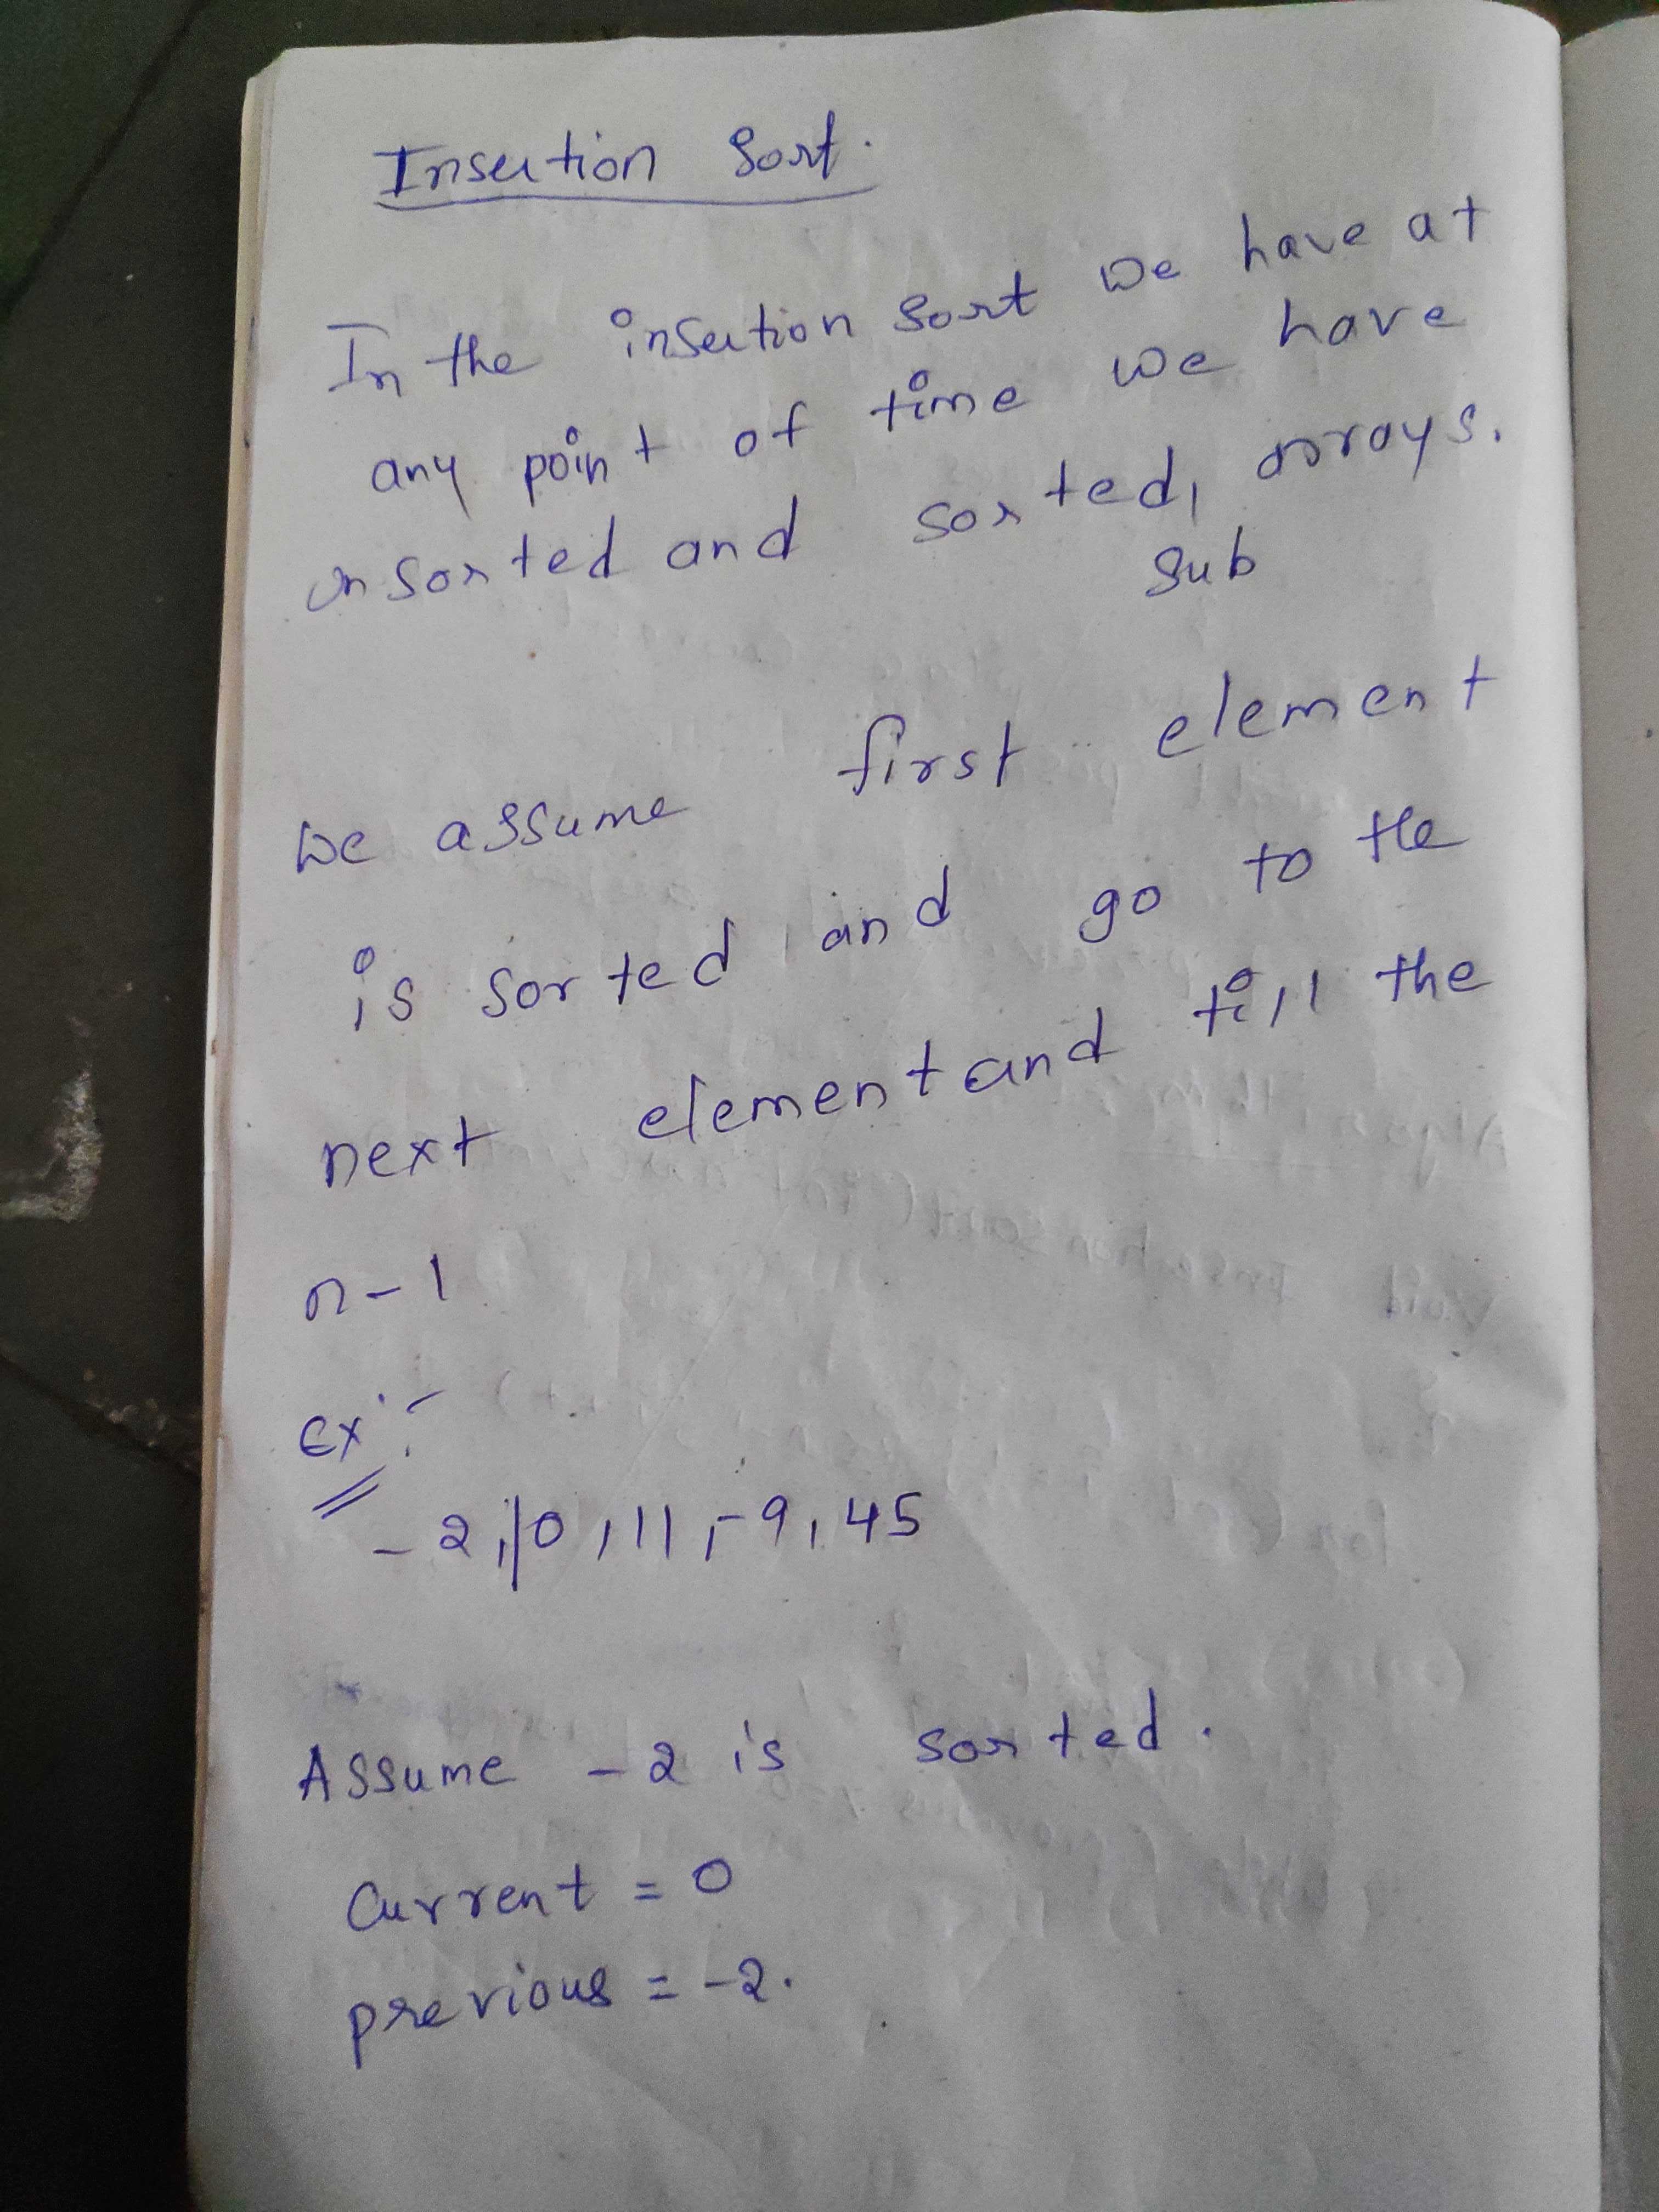 Insertion Sort.
In the insertion sort we have at
any point of time we have
unsorted and sorted, arrays.
sub
we assume first element
is sorted and go to the
next element and till the
n-1
Ex:-
-2,|0,11,-9,45
Assume -2 is sorted.
Current = 0
previous = -2.